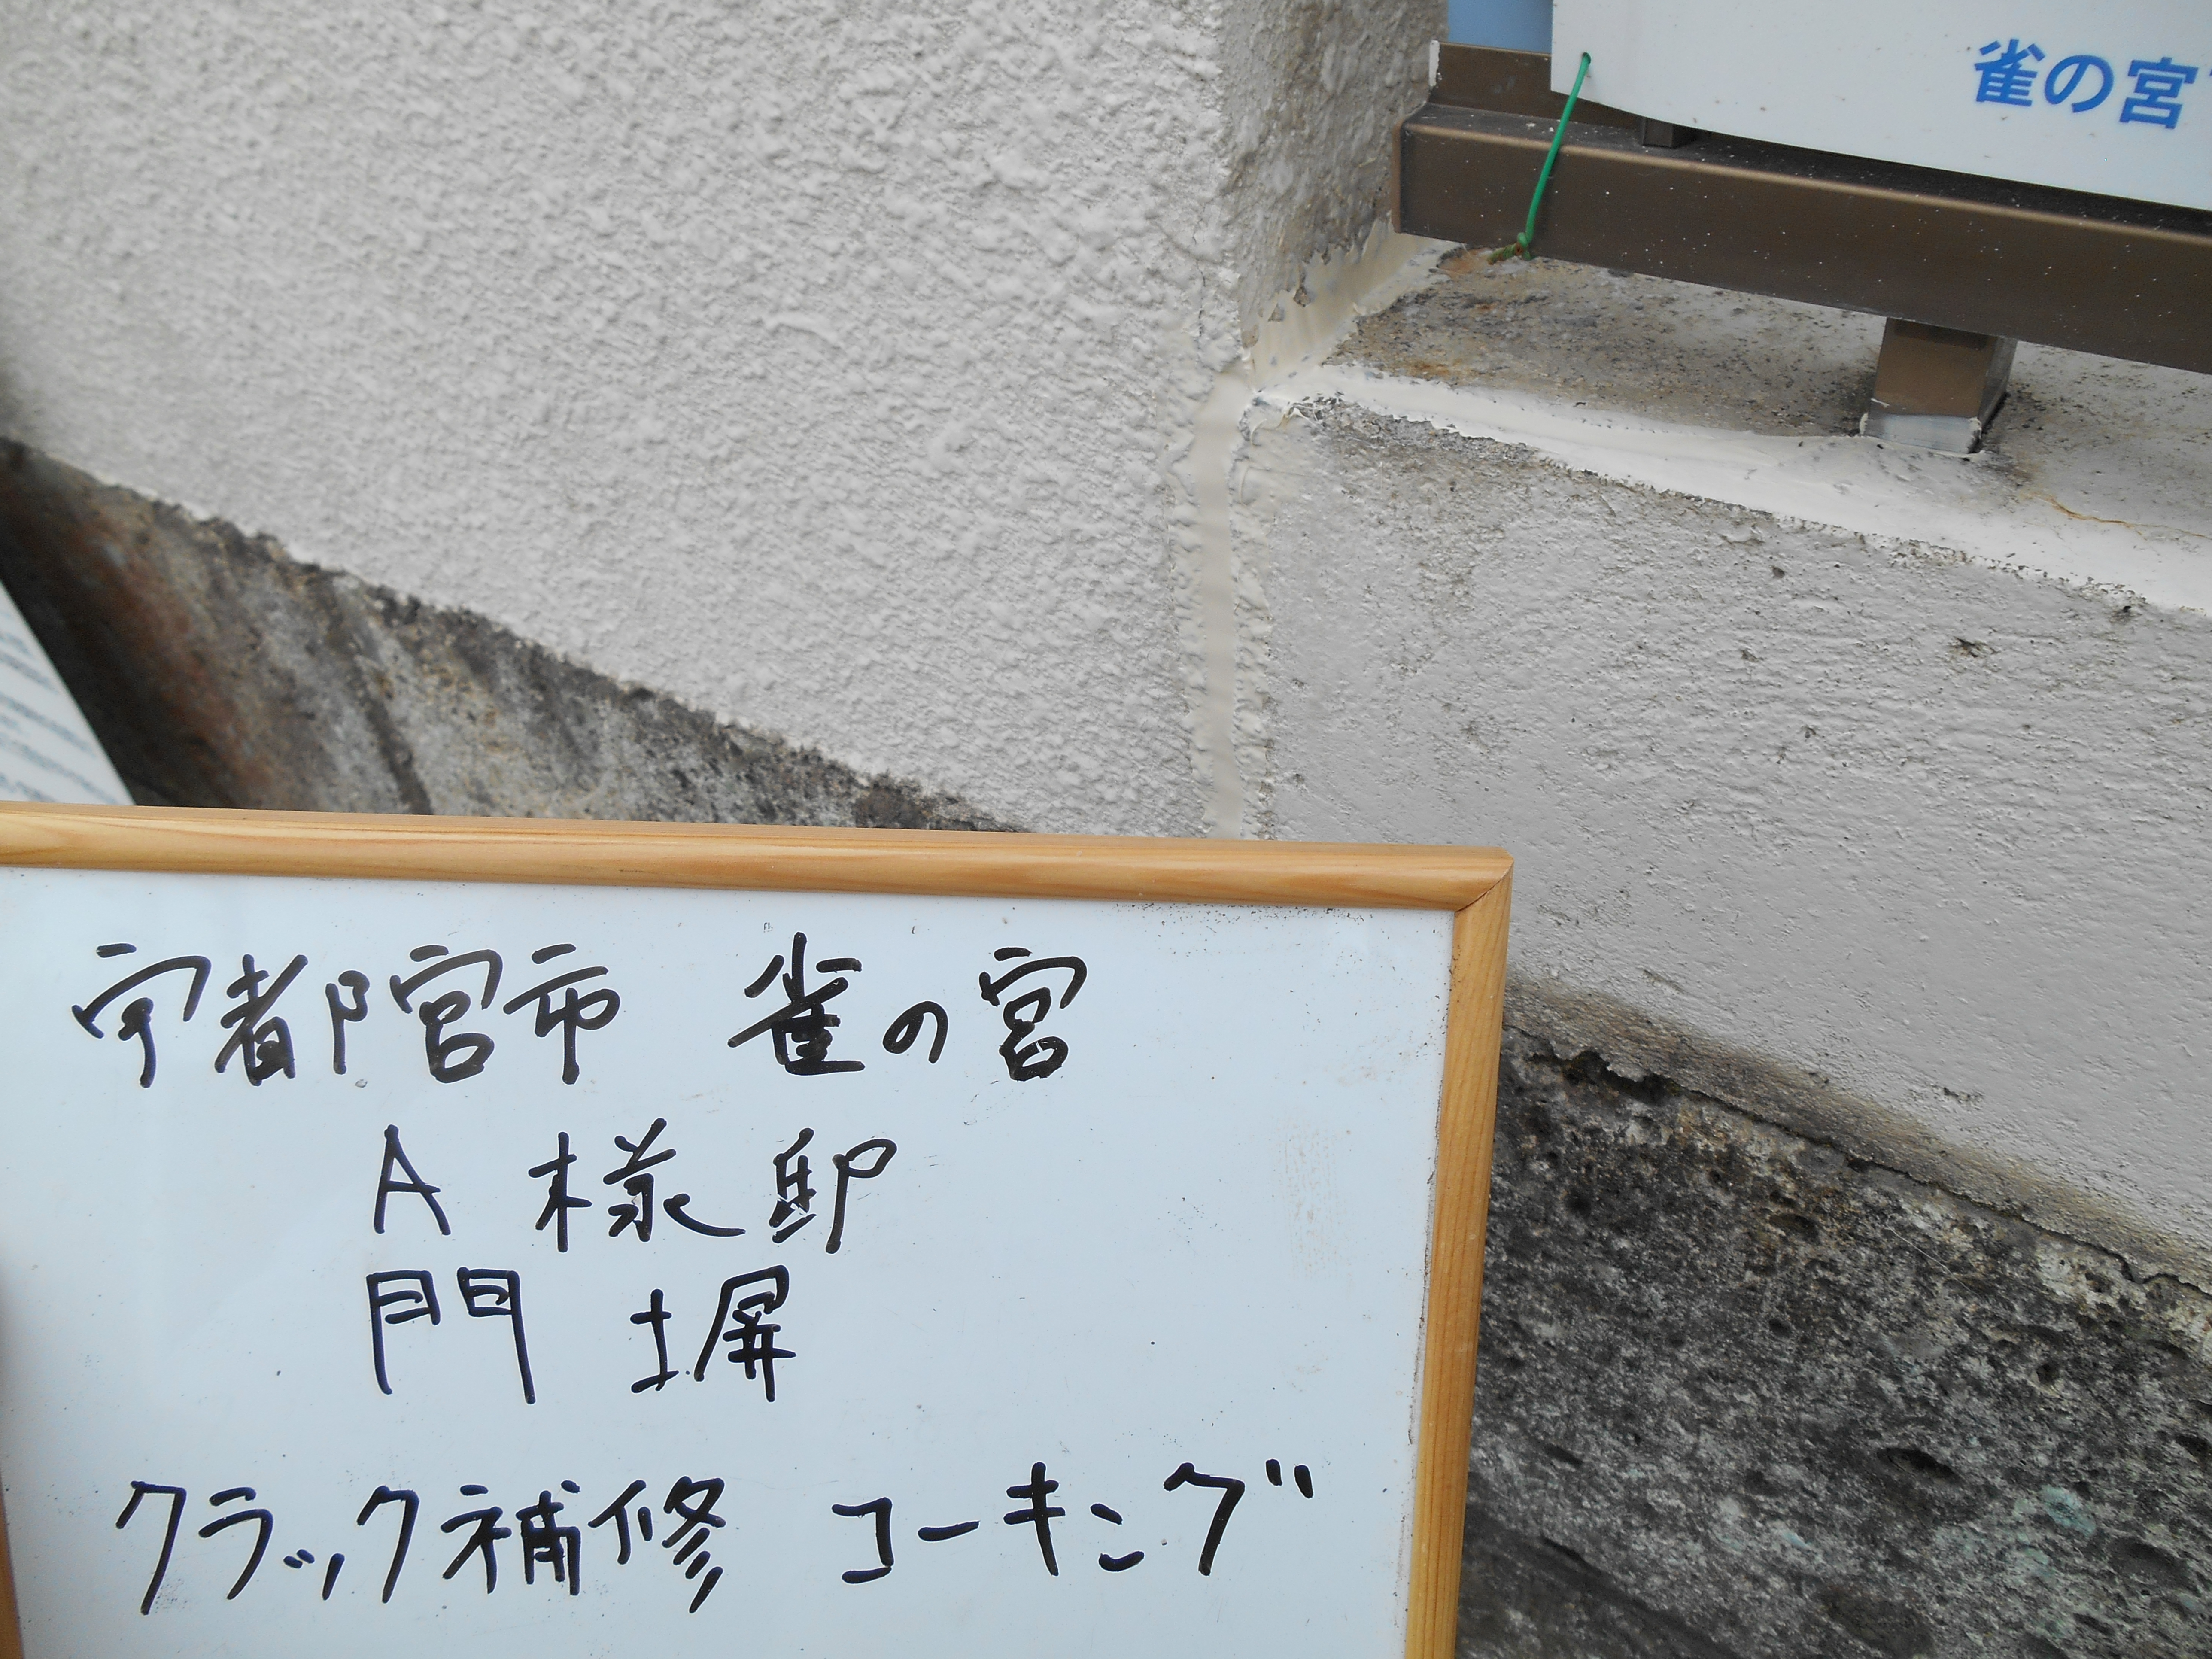 雀の宮
宇都宮市 雀の宮
A 様邸
門 塀
クラック補修 コーキング